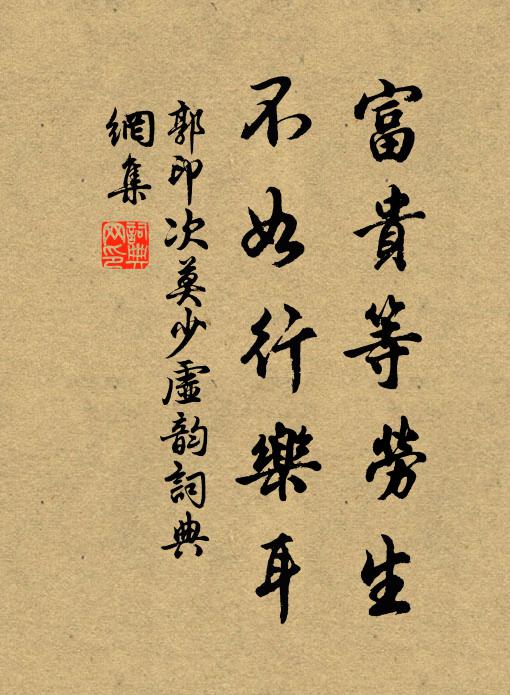 富貴等勞生
不如行樂耳
郭印次莫少虛韵詞典
網集
詞典
网印